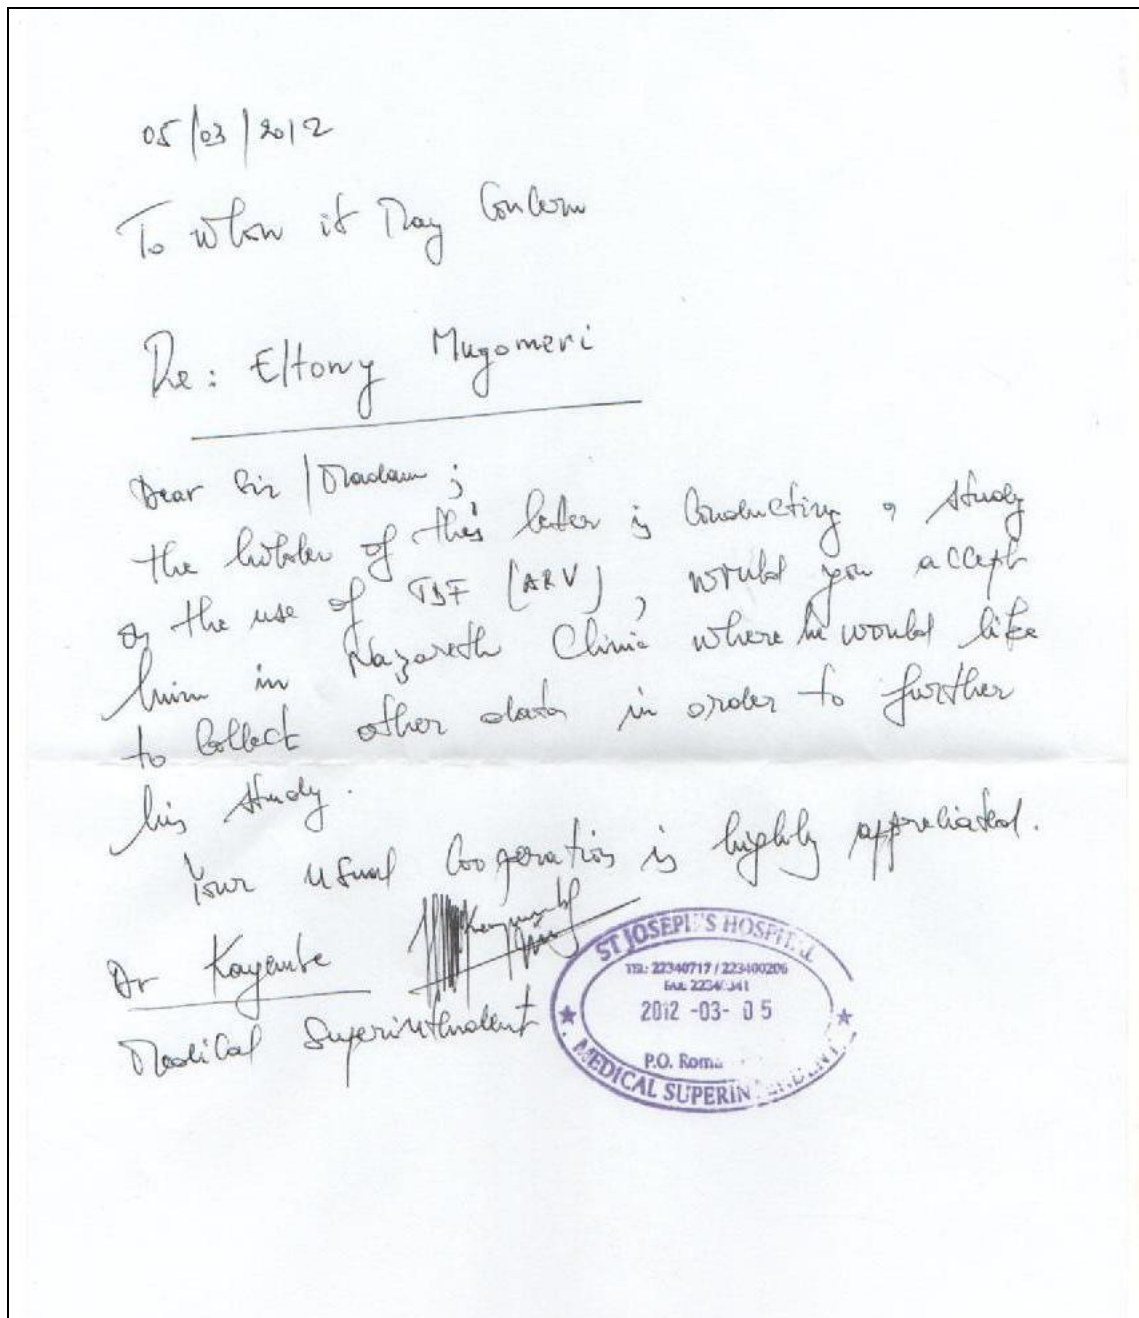 05/03/2012
To whom it May Concern
Re: Eltony Mugomeri
Dear Sir/Madam;
the holder of this letter is conducting a study
on the use of TDF (ARV), would you accept
him in Nazareth Clinic where he would like
to collect other data in order to further
his study.
Your usual cooperation is highly appreciated.
Dr Kayembe
Medical Superintendent
ST JOSEPH'S HOSPITAL
TEL: 22340717 / 223400206
FAX: 2234
2012 -03- 05
P.O. Roma
MEDICAL SUPERIN